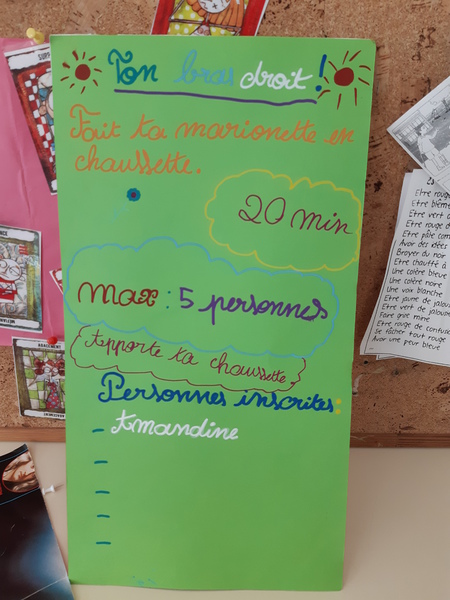 Ton bras droit !
Fait ta marionette en
chaussette.
20 min
Max : 5 personnes
Apporte ta chaussette.
Personnes inscrites:
- Amandine
-
-
-
-
Etre rouge
Etre blême
Etre vert d
Etre rouge
Etre pâle com
Avoir des idées
Broyer du noir
Etre chauffé à
Une colère bleue
Une colère noire
Une voix blanche
Etre jaune de jalous
Etre vert de jalous
Faire grise mine
Etre rouge de confus
Se fâcher tout rouge
Avoir une peur bleue